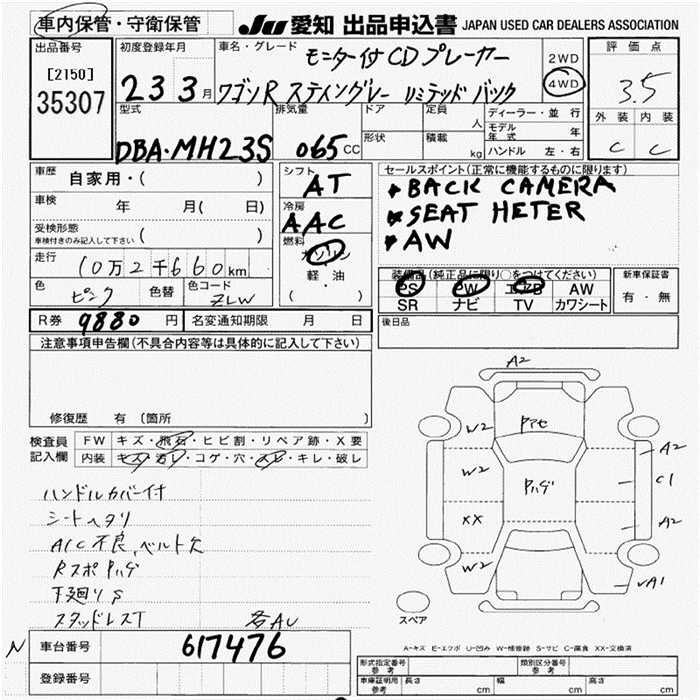 車内保管・守衛保管
JU 愛知 出品申込書 JAPAN USED CAR DEALERS ASSOCIATION
出品番号
[2150]
35307
初度登録年月
23 3月
車名・グレード
モニター付CDプレーヤー
ワゴンR スティングレー リミテッド バック
2WD
4WD
評価点
3.5
外装 内装
C C
型式
DBA・MH23S
排気量
065cc
ドア
形状
定員 人
積載 kg
ディーラー・並行
モデル年式 年
ハンドル 左・右
車歴 自家用・( )
車検 年 月( 日)
受検形態
車検付きのみ記入して下さい ( )
走行 10万2千660km
色 ピンク 色替 色コード ZLW
シフト
AT
冷房
AAC
燃料
ガソリン
軽・油
( ・ )
セールスポイント(正常に機能するものに限ります)
★BACK CAMERA
★SEAT HETER
★AW
装備品(純正品に限り○をつけてください)
PS PW エアB AW
SR ナビ TV カワシート
新車保証書
有・無
R券 9880円 名変通知期限 月 日
後日品
注意事項申告欄(不具合内容等は具体的に記入して下さい)
修復歴 有 〔箇所
検査員
記入欄
FW キズ・飛石・ヒビ割・リペア跡・X要
内装 キズ・汚レ・コゲ・穴・スレ・キレ・破レ
ハンドルカバー付
シートヘタリ
A/C不良、ベルト欠
Rスポハゲ
下廻りS
スタッドレスT 各AU
A2
W2
W2
XX
W2
A2
C1
A2
A1
スペア
A-キズ E-エクボ U-凹み W-補修跡 S-サビ C-腐食 XX-交換済
N 車台番号 617476
登録番号
形式指定番号
参考
類別区分番号
参考
車庫証明用
参考
長さ cm 幅 cm 高さ cm